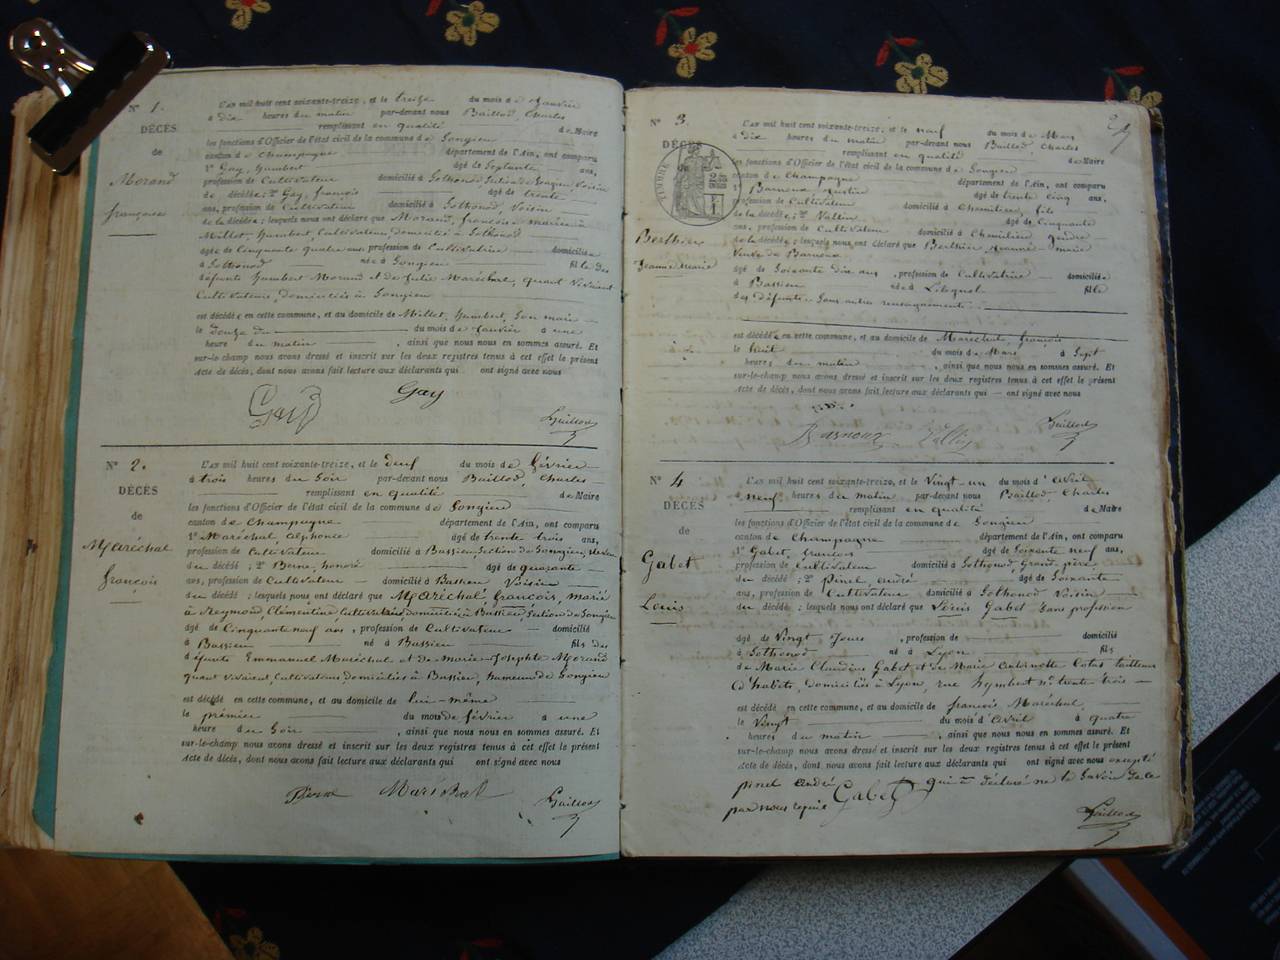 N° 1.
DÉCÈS
de
Morand
françoise
L'an mil huit cent soixante-treize, et le treize du mois de Janvier
à dix heures du matin par-devant nous Baillod, Charles
remplissant en qualité de Maire
les fonctions d'Officier de l'état civil de la commune de Songieu
canton de Champagne département de l'Ain, ont comparu
1° Gay, humbert âgé de Septante ans,
profession de Cultivateur domicilié à Sothonod Section de Songieu, Voisin
de décédée; 2° Gay, françois âgé de trente
ans, profession de Cultivateur domicilié à Sothonod, Voisin
de la décédée; lesquels nous ont déclaré que Morand, françoise mariée à
Millet, humbert, Cultivateur, domicilié à Sothonod
âgée de Cinquante quatre ans profession de Cultivatrice domiciliée
à Sothonod née à Songieu fille des
défunts humbert Morand et de Julie Maréchal, quant Vivaient
Cultivateurs, domiciliés à Songieu
est décédée en cette commune, et au domicile de Millet, humbert, Son mari
le douze du du mois de Janvier à une
heure du matin, ainsi que nous nous en sommes assuré. Et
sur-le champ nous avons dressé et inscrit sur les deux registres tenus à cet effet le présent
acte de décès, dont nous avons fait lecture aux déclarants qui ont signé avec nous
Gay Gay
Baillod
N° 2.
DÉCÈS
de
Maréchal
françois
L'an mil huit cent soixante-treize, et le deuf du mois de février
à trois heures du Soir par-devant nous Baillod, Charles
remplissant en qualité de Maire
les fonctions d'Officier de l'état civil de la commune de Songieu
canton de Champagne département de l'Ain, ont comparu
1° Maréchal, alphonce âgé de trente trois ans,
profession de Cultivateur domicilié à Bassieu Section de Songieu,
du décédé; 2° Berne, honoré âgé de quarante
ans, profession de Cultivateur domicilié à Bassieu Voisin
du décédé; lesquels nous ont déclaré que Maréchal, françois, marié
à Reymond, Clémentine, Cultivateur, domicilié à Bassieu, Section de Songieu
âgé de Cinquante neuf ans, profession de Cultivateur domicilié
à Bassieu né à Bassieu fils des
défunts Emmanuel Maréchal et de Marie-Josephte Morand
quant vivaient, Cultivateurs domiciliés à Bassieu, hameau de Songieu
est décédé en cette commune, et au domicile de lui-même
le premier du mois de février à une
heure du Soir, ainsi que nous nous en sommes assuré. Et
sur-le-champ nous avons dressé et inscrit sur les deux registres tenus à cet effet le présent
acte de décès, dont nous avons fait lecture aux déclarants qui ont signé avec nous
Berne Maréchal
Baillod
N° 3.
DÉCÈS
TIMBRE
Berthier
Jeanne Marie
L'an mil huit cent soixante-treize, et le neuf du mois de Mars
à dix heures du matin par-devant nous Baillod, Charles
remplissant en qualité de Maire
les fonctions d'Officier de l'état civil de la commune de Songieu
canton de Champagne département de l'Ain, ont comparu
1° Barnoux âgé de trente Cinq ans,
profession de Cultivateur domicilié à Chemilieu, fils
de la décédée; 2° Vallin âgé de Cinquante
ans, profession de Cultivateur domicilié à Chemilieu
de la décédée; lesquels nous ont déclaré que Berthier Jeanne Marie
Veuve de Barnoux
âgé de Soixante dix ans, profession de Cultivatrice domiciliée
à Bassieu née à fille
des défunts. Sans autres renseignements
est décédée en cette commune, et au domicile de Maréchal, françois
le huit du mois de Mars à Sept
heures du matin, ainsi que nous nous en sommes assuré. Et
sur-le-champ nous avons dressé et inscrit sur les deux registres tenus à cet effet le présent
acte de décès, dont nous avons fait lecture aux déclarants qui ont signé avec nous
Barnoux Vallin
Baillod
N° 4
DÉCÈS
de
Gabet
Louis
L'an mil huit cent soixante-treize, et le Vingt-un du mois d'avril
à neuf heures du matin par-devant nous Baillod, Charles
remplissant en qualité de Maire
les fonctions d'Officier de l'état civil de la commune de Songieu
canton de Champagne département de l'Ain, ont comparu
1° Gabet, françois âgé de Soixante neuf ans,
profession de Cultivateur domicilié à Sothonod, Grand père
du décédé; 2° Pinel, andré âgé de Soixante
ans, profession de Cultivateur domicilié à Sothonod Voisin
du décédé; lesquels nous ont déclaré que Louis Gabet Sans profession
âgé de Vingt Jours, profession de domicilié
à Sothonod né à Lyon fils
de Marie Claudius Gabet et de Marie Cotes tailleur
d'habits, domiciliés à Lyon, rue hymbert n° trente trois
est décédé en cette commune, et au domicile de françois Maréchal
le Vingt du mois d'avril à quatre
heures du matin, ainsi que nous nous en sommes assuré. Et
sur-le-champ nous avons dressé et inscrit sur les deux registres tenus à cet effet le présent
acte de décès, dont nous avons fait lecture aux déclarants qui ont signé avec nous excepté
pinel andré qui a déclaré ne le Savoir de ce
par nous requis Gabet
Baillod